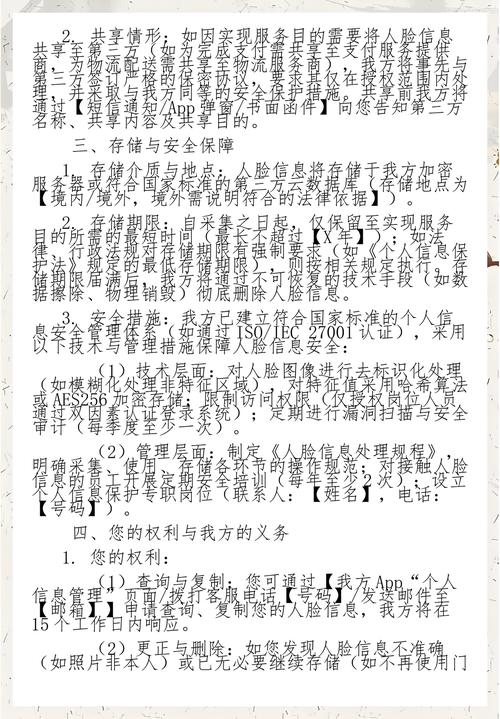 2. 共享情形：如因实现服务目的需要将人脸信息
共享至第三方（如为完成支付需共享至支付服务提供
商，为物流配送需共享至物流服务商），我方将事先与
第三方签订严格的保密协议，要求其仅在授权范围内处
理，并采取与我方同等的安全保护措施。共享前我方将
通过【短信通知/App弹窗/书面函件】向您告知第三方
名称、共享内容及共享目的。
三、存储与安全保障
1. 存储介质与地点：人脸信息将存储于我方加密
服务器或符合国家标准的第三方云数据库（存储地点为
【境内/境外，境外需说明符合的法律依据】）。
2. 存储期限：自采集之日起，仅保留至实现服务
目的所需的最短时间（最长不超过【X年】）；如法
律、行政法规对存储期限有强制要求（如《个人信息保
护法》规定的最低存储期限），则按相关规定执行。存
储期限届满后，我方将通过不可恢复的技术手段（如数
据擦除、物理销毁）彻底删除人脸信息。
3. 安全措施：我方已建立符合国家标准的个人信
息安全管理体系（如通过ISO/IEC 27001认证），采用
以下技术与管理措施保障人脸信息安全：
（1）技术层面：对人脸图像进行去标识化处理
（如模糊化处理非特征区域），对特征值采用哈希算法
或AES256加密存储；限制访问权限（仅授权岗位人员
通过双因素认证登录系统）；定期进行漏洞扫描与安全
审计（每季度至少一次）。
（2）管理层面：制定《人脸信息处理规程》，
明确采集、使用、存储各环节的操作规范；对接触人脸
信息的员工开展定期安全培训（每年至少2次）；设立
个人信息保护专职岗位（联系人：【姓名】，电话：
【号码】）。
四、您的权利与我方的义务
1. 您的权利：
（1）查询与复制：您可通过【我方App“个人
信息管理”页面/拨打客服电话【号码】/发送邮件至
【邮箱】】申请查询、复制您的人脸信息，我方将在
15个工作日内响应。
（2）更正与删除：如您发现人脸信息不准确
（如照片非本人）或已无必要继续存储（如不再使用门